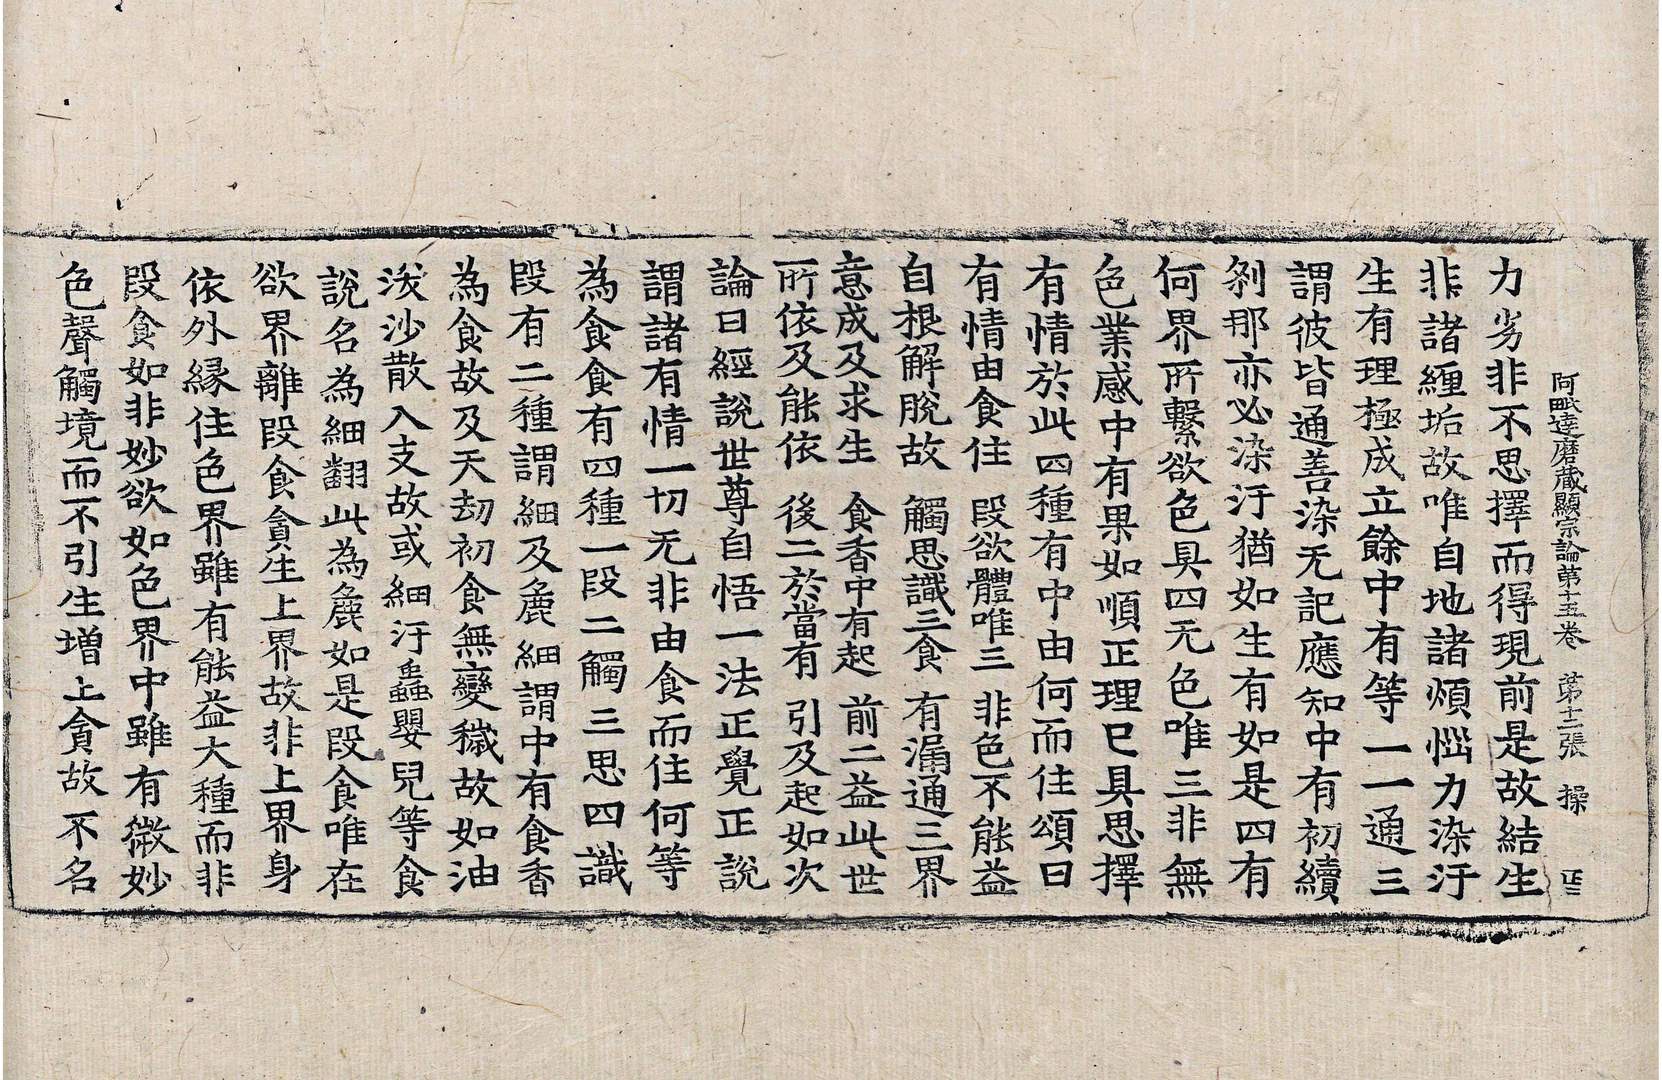 阿毗達磨藏顯宗論第十五卷 第十二張 操
力劣非不思擇而得現前是故結生
非諸纏垢故唯自地諸煩惱力染汙
生有理極成立餘中有等一一通三
謂彼皆通善染无記應知中有初續
刹那亦必染汙猶如生有如是四有
何界所繫欲色具四无色唯三非無
色業感中有果如順正理已具思擇
有情於此四種有中由何而住頌曰
有情由食住 段欲體唯三 非色不能益
自根解脫故 觸思識三食 有漏通三界
意成及求生 食香中有起 前二益此世
所依及能依 後二於當有 引及起如次
論曰經說世尊自悟一法正覺正說
謂諸有情一切无非由食而住何等
為食食有四種一段二觸三思四識
段有二種謂細及麁細謂中有食香
為食故及天劫初食無變穢故如油
沃沙散入支故或細汙蟲嬰兒等食
說名為細翻此為麁如是段食唯在
欲界離段食貪生上界故非上界身
依外緣住色界雖有能益大種而非
段食如非妙欲如色界中雖有微妙
色聲觸境而不引生增上貪故不名